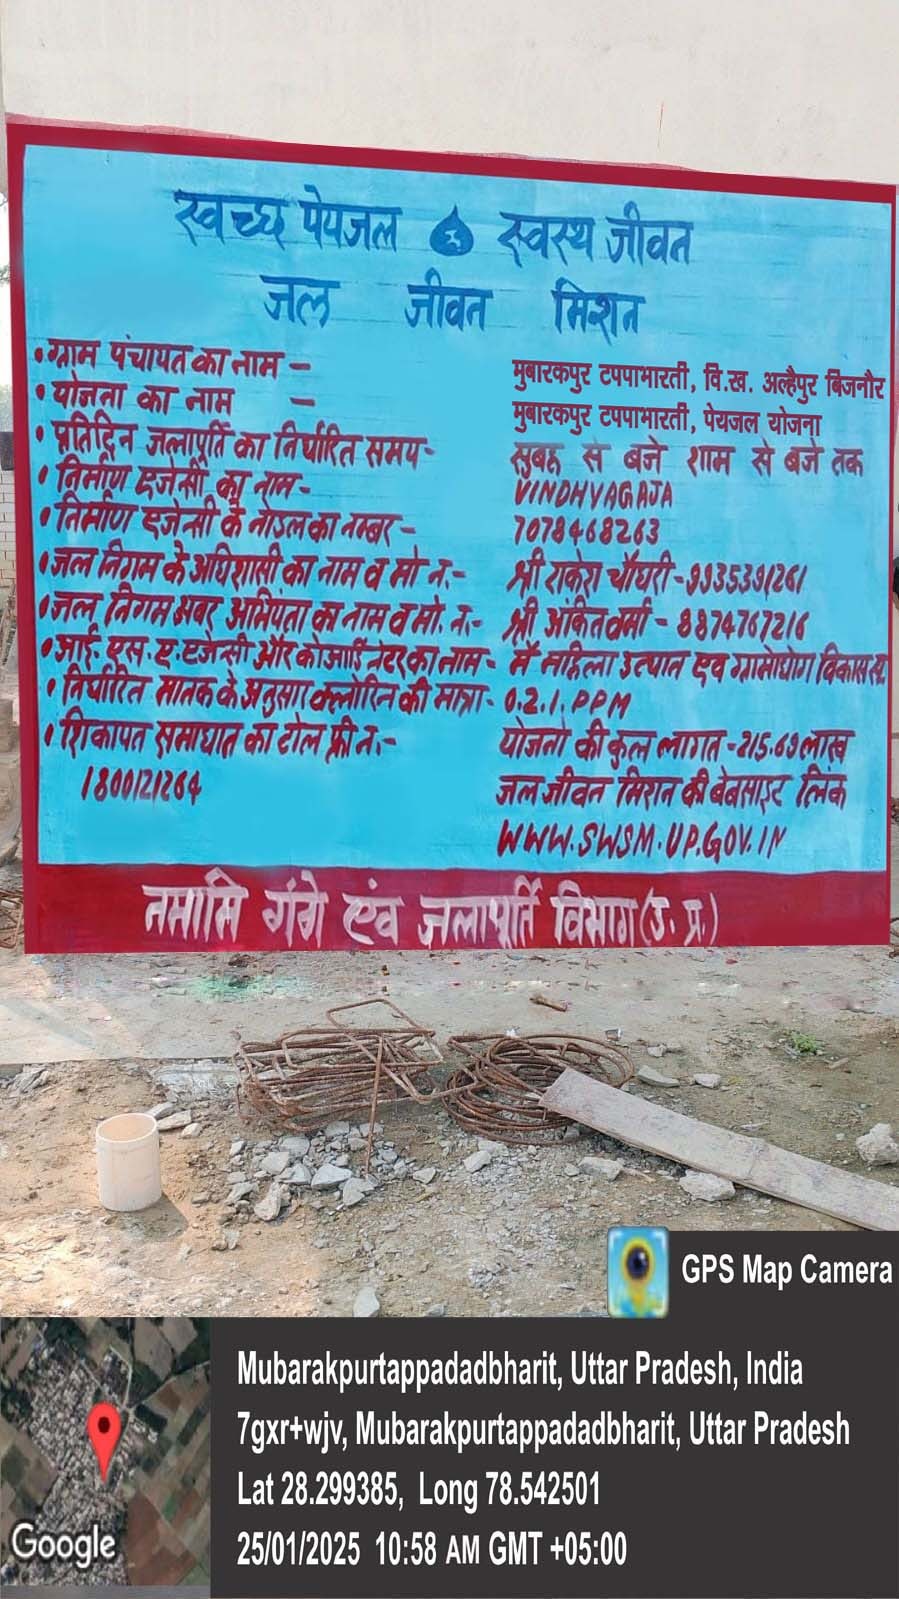 स्वच्छ पेयजल स्वस्थ जीवन
जल जीवन मिशन
• ग्राम पंचायत का नाम – मुबारकपुर टपपाभारती, वि.ख. अल्हैपुर बिजनौर
• योजना का नाम – मुबारकपुर टपपाभारती, पेयजल योजना
• प्रतिदिन जलापूर्ति का निर्धारित समय- सुबह से बजे शाम से बजे तक
• निर्माण एजेन्सी का नाम- VINDHYAGAJA
• निर्माण एजेन्सी के नोडल का नम्बर- 7078468263
• जल निगम के अधिशासी का नाम व मो न.- श्री राकेश चौधरी-9935391261
• जल निगम अबर अभियंता का नाम व मो. न.- श्री अंकित वर्मा - 8874767216
• आई. एस. ए. एजेन्सी और कोआर्डिनेटर का नाम- मै महिला उत्थान एव ग्रामोद्योग विकास स.
• निर्धारित मानक के अनुसार क्लोरिन की मात्रा- 0.2.1. PPM
• शिकायत समाधान का टोल फ्री न.- योजनो की कुल लागत-215.69 लाख
1800121264 जल जीवन मिशन की बेबसाइट लिंक
WWW.SWSM.UP.GOV.IN
नमामि गंगे एंव जलापूर्ति विभाग (उ. प्र.)
GPS Map Camera
Mubarakpurtappadadbharit, Uttar Pradesh, India
7gxr+wjv, Mubarakpurtappadadbharit, Uttar Pradesh
Lat 28.299385, Long 78.542501
25/01/2025 10:58 AM GMT +05:00
Google